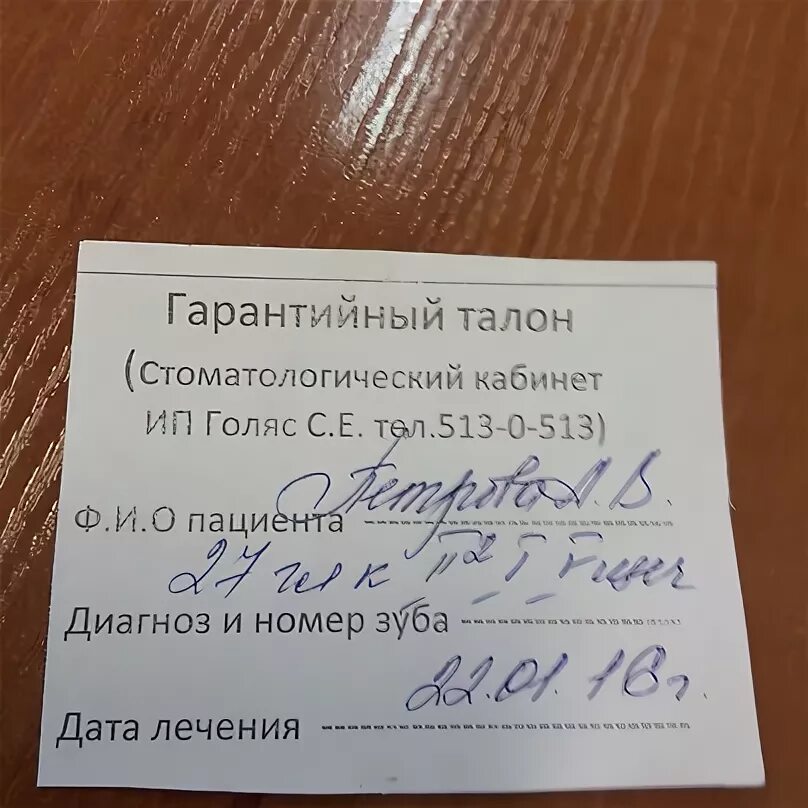 Гарантийный талон
(Стоматологический кабинет
ИП Голяс С.Е. тел.513-0-513)
Ф.И.О пациента Петрова А. В.
27
Диагноз и номер зуба
Дата лечения 22.01.16г.